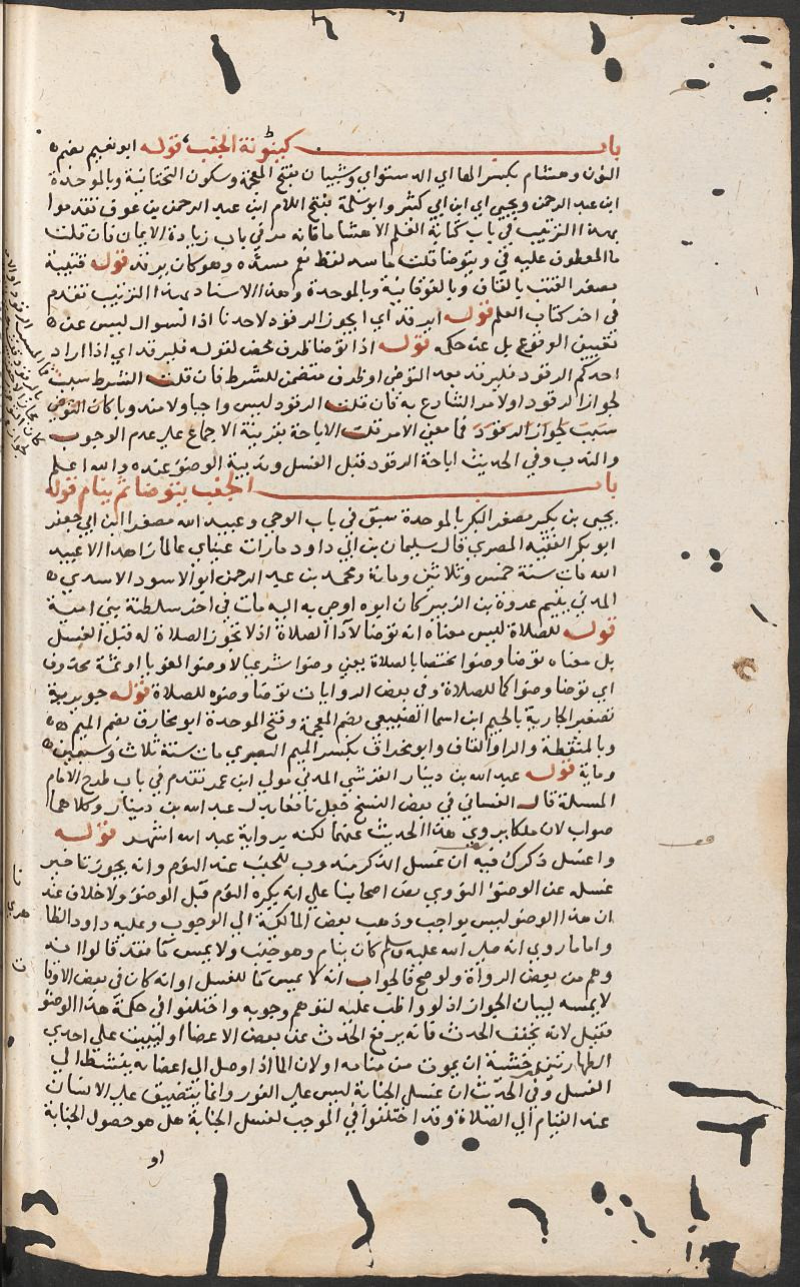 باب كينونة الجنب قوله ابو نعيم بضم
النون وهشام بكسر الها اي الدستواي وشيبان بفتح المعجمة وسكون التحتانية وبالموحدة
ابن عبد الرحمن ويحيى اي ابن ابي كثير وابو سلمة بفتح اللام ابن عبد الرحمن بن عوف تقدموا
بهذا الترتيب في باب كتابة العلم الا هشاما فانه مر في باب زيادة الايمان فان قلت
ما المعطوف عليه في ويتوضا قلت ما سد لفظ نعم مسده وهو كان يرقد قوله قتيبة
مصغر القتب بالقاف وبالفوقانية وبالموحدة وهذا الاسناد بهذا الترتيب تقدم
في اخر كتاب العلم قوله ايرقد اي ايجوز الرقود لاحدنا اذ السوال ليس عن
تعيين الوقوع بل عن حكمه قوله اذا توضا ظرف محض لقوله فليرقد اي اذا اراد
احدكم الرقود فليرقد بعد التوضي او ظرف متضمن للشرط فان قلت الشرط سبب
لجواز الرقود او لامر الشارع به فان قلت الرقود ليس واجبا ولا مندوبا كان التوضي
سبب لجواز الرقود فما معنى الامر قلت الاباحة بقرينة الاجماع على عدم الوجوب
والندب وفي الحديث اباحة الرقود قبل الغسل وندبية الوضوء عنده والله اعلم
باب الجنب يتوضا ثم ينام قوله
يحيى بن بكير مصغر البكر بالموحدة سبق في باب الوحي وعبيد الله مصغرا ابن ابي جعفر
ابو بكر الفقيه المصري قال سليمان بن ابي داود ما رات عيناي عالما زاهدا الا عبيد
الله مات سنة خمس وثلاثين ومائة ومحمد بن عبد الرحمن ابو الاسود الاسدي
المدني يتيم عروة بن الزبير كان ابوه اوصى به اليه مات في اخر سلطنة بني امية
قوله للصلاة ليس معناه انه توضا لاداء الصلاة اذ لا تجوز الصلاة له قبل الغسل
بل معناه توضا وضوا مختصا بالصلاة يعني وضوا شرعيا لا وضوا لغويا او ثمة محذوف
اي توضا وضوا كما للصلاة وفي بعض الروايات توضا وضوه للصلاة قوله جويرية
تصغير الجارية بالجيم ابن اسما الضبيعي بضم المعجمة وفتح الموحدة ابو مخارق بضم الميم
وبالمنقطة والرا والقاف وابو مخراق بكسر الميم البصري مات سنة ثلاث وسبعين
وماية قوله عبد الله بن دينار القرشي المدني مولي ابن عمر تقدم في باب طرح الامام
المسلة قال الغساني في بعض النسخ جعل نافعا بدل عبد الله بن دينار وكلاهما
صواب لان ملكا يروي هذا الحديث عنهما لكنه برواية عبد الله اشهر قوله
واغسل ذكرك فيه ان غسل الذكر مندوب للجنب عند النوم وانه يجوز تاخير
غسله عن الوضوء النووي نص اصحابنا على انه يكره النوم قبل الوضوء ولا خلاف عند
ان هذا الوضوء ليس بواجب وذهب بعض المالكية الى الوجوب وعليه داود الظا
واما ما روي انه صلى الله عليه وسلم كان ينام وهو جنب ولا يمس ما فقد قالوا انه
وهم من بعض الرواة ولو صح فالجواب انه لا يمس ما للغسل او انه كان في بعض الاوقا
لا يمسه لبيان الجواز اذ لو واظب عليه لتوهم وجوبه واختلفوا في حكمة هذا الوضو
فقيل لانه يخفف الحدث فانه يرفع الحدث عن بعض الاعضا او ليبيت على احدى
الطهارتين خشية ان يموت من منامه او لان الما اذا وصل الى اعضائه ينشط الى
الغسل وفي الحديث ان غسل الجنابة ليس على الفور وانما يتضيق على الانسان
عند القيام الى الصلاة وقد اختلفوا في الموجب لغسل الجنابة هل هو حصول الجنابة
او